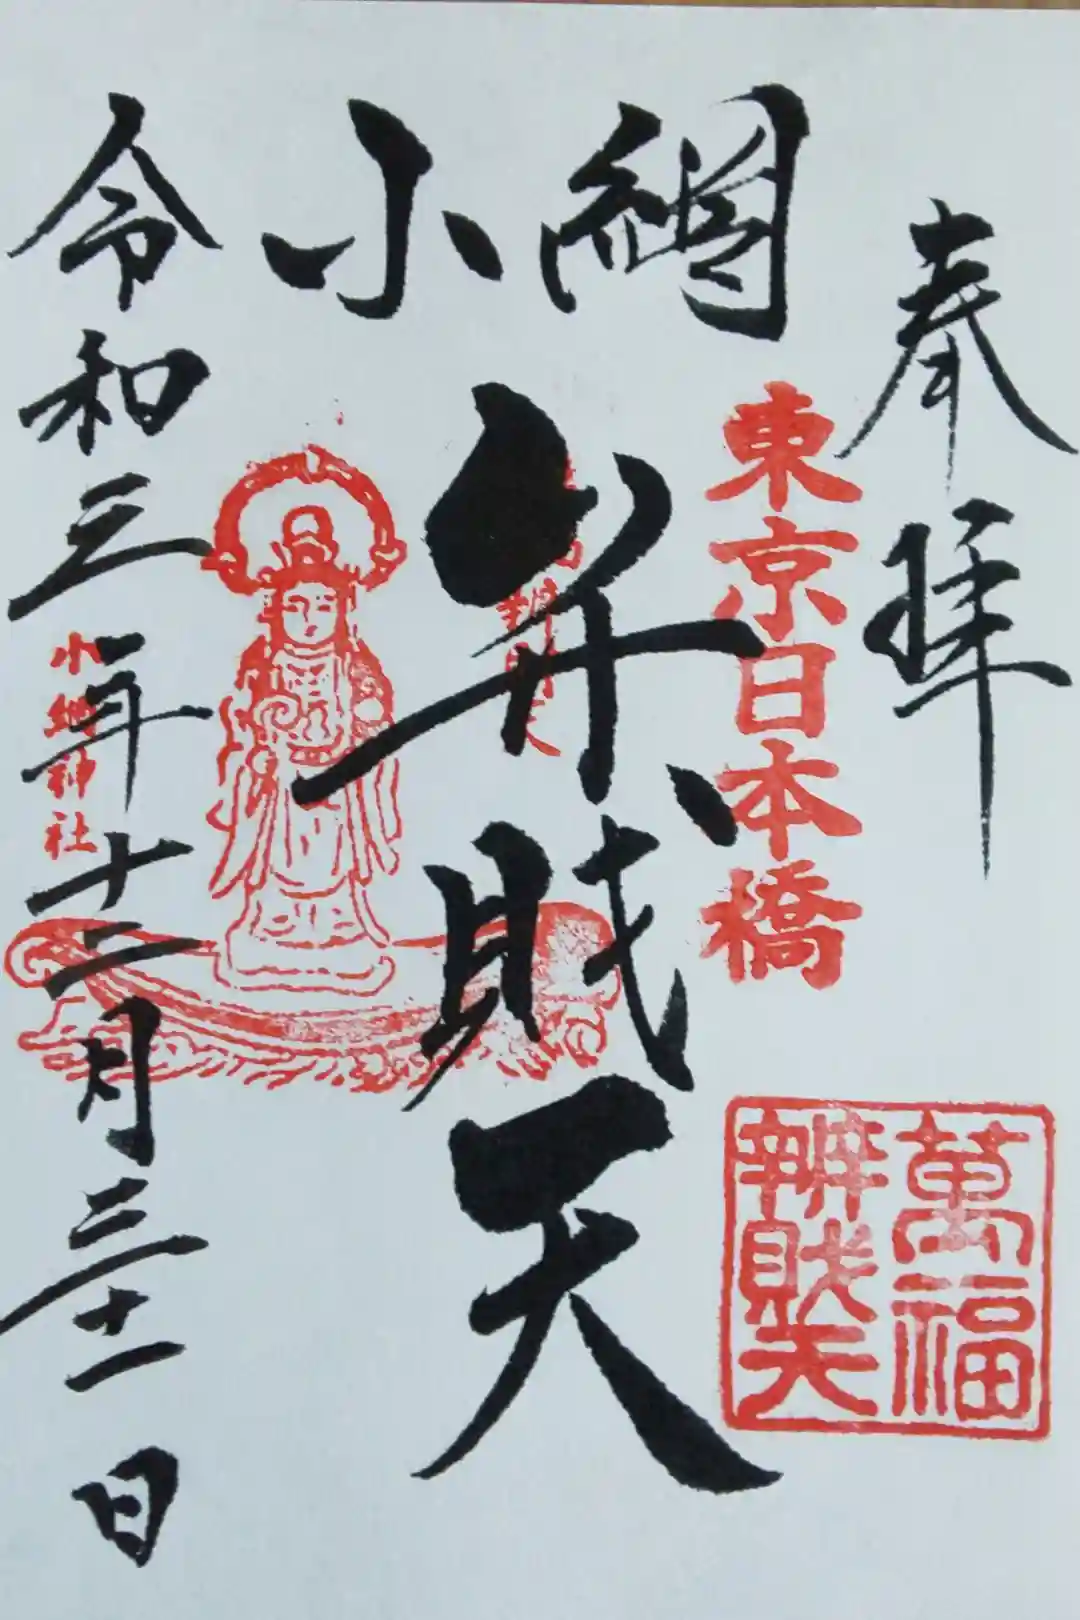 奉拝
東京日本橋
萬福
辨財天
小網
弁財天
小網神社
令和三年十二月三十一日